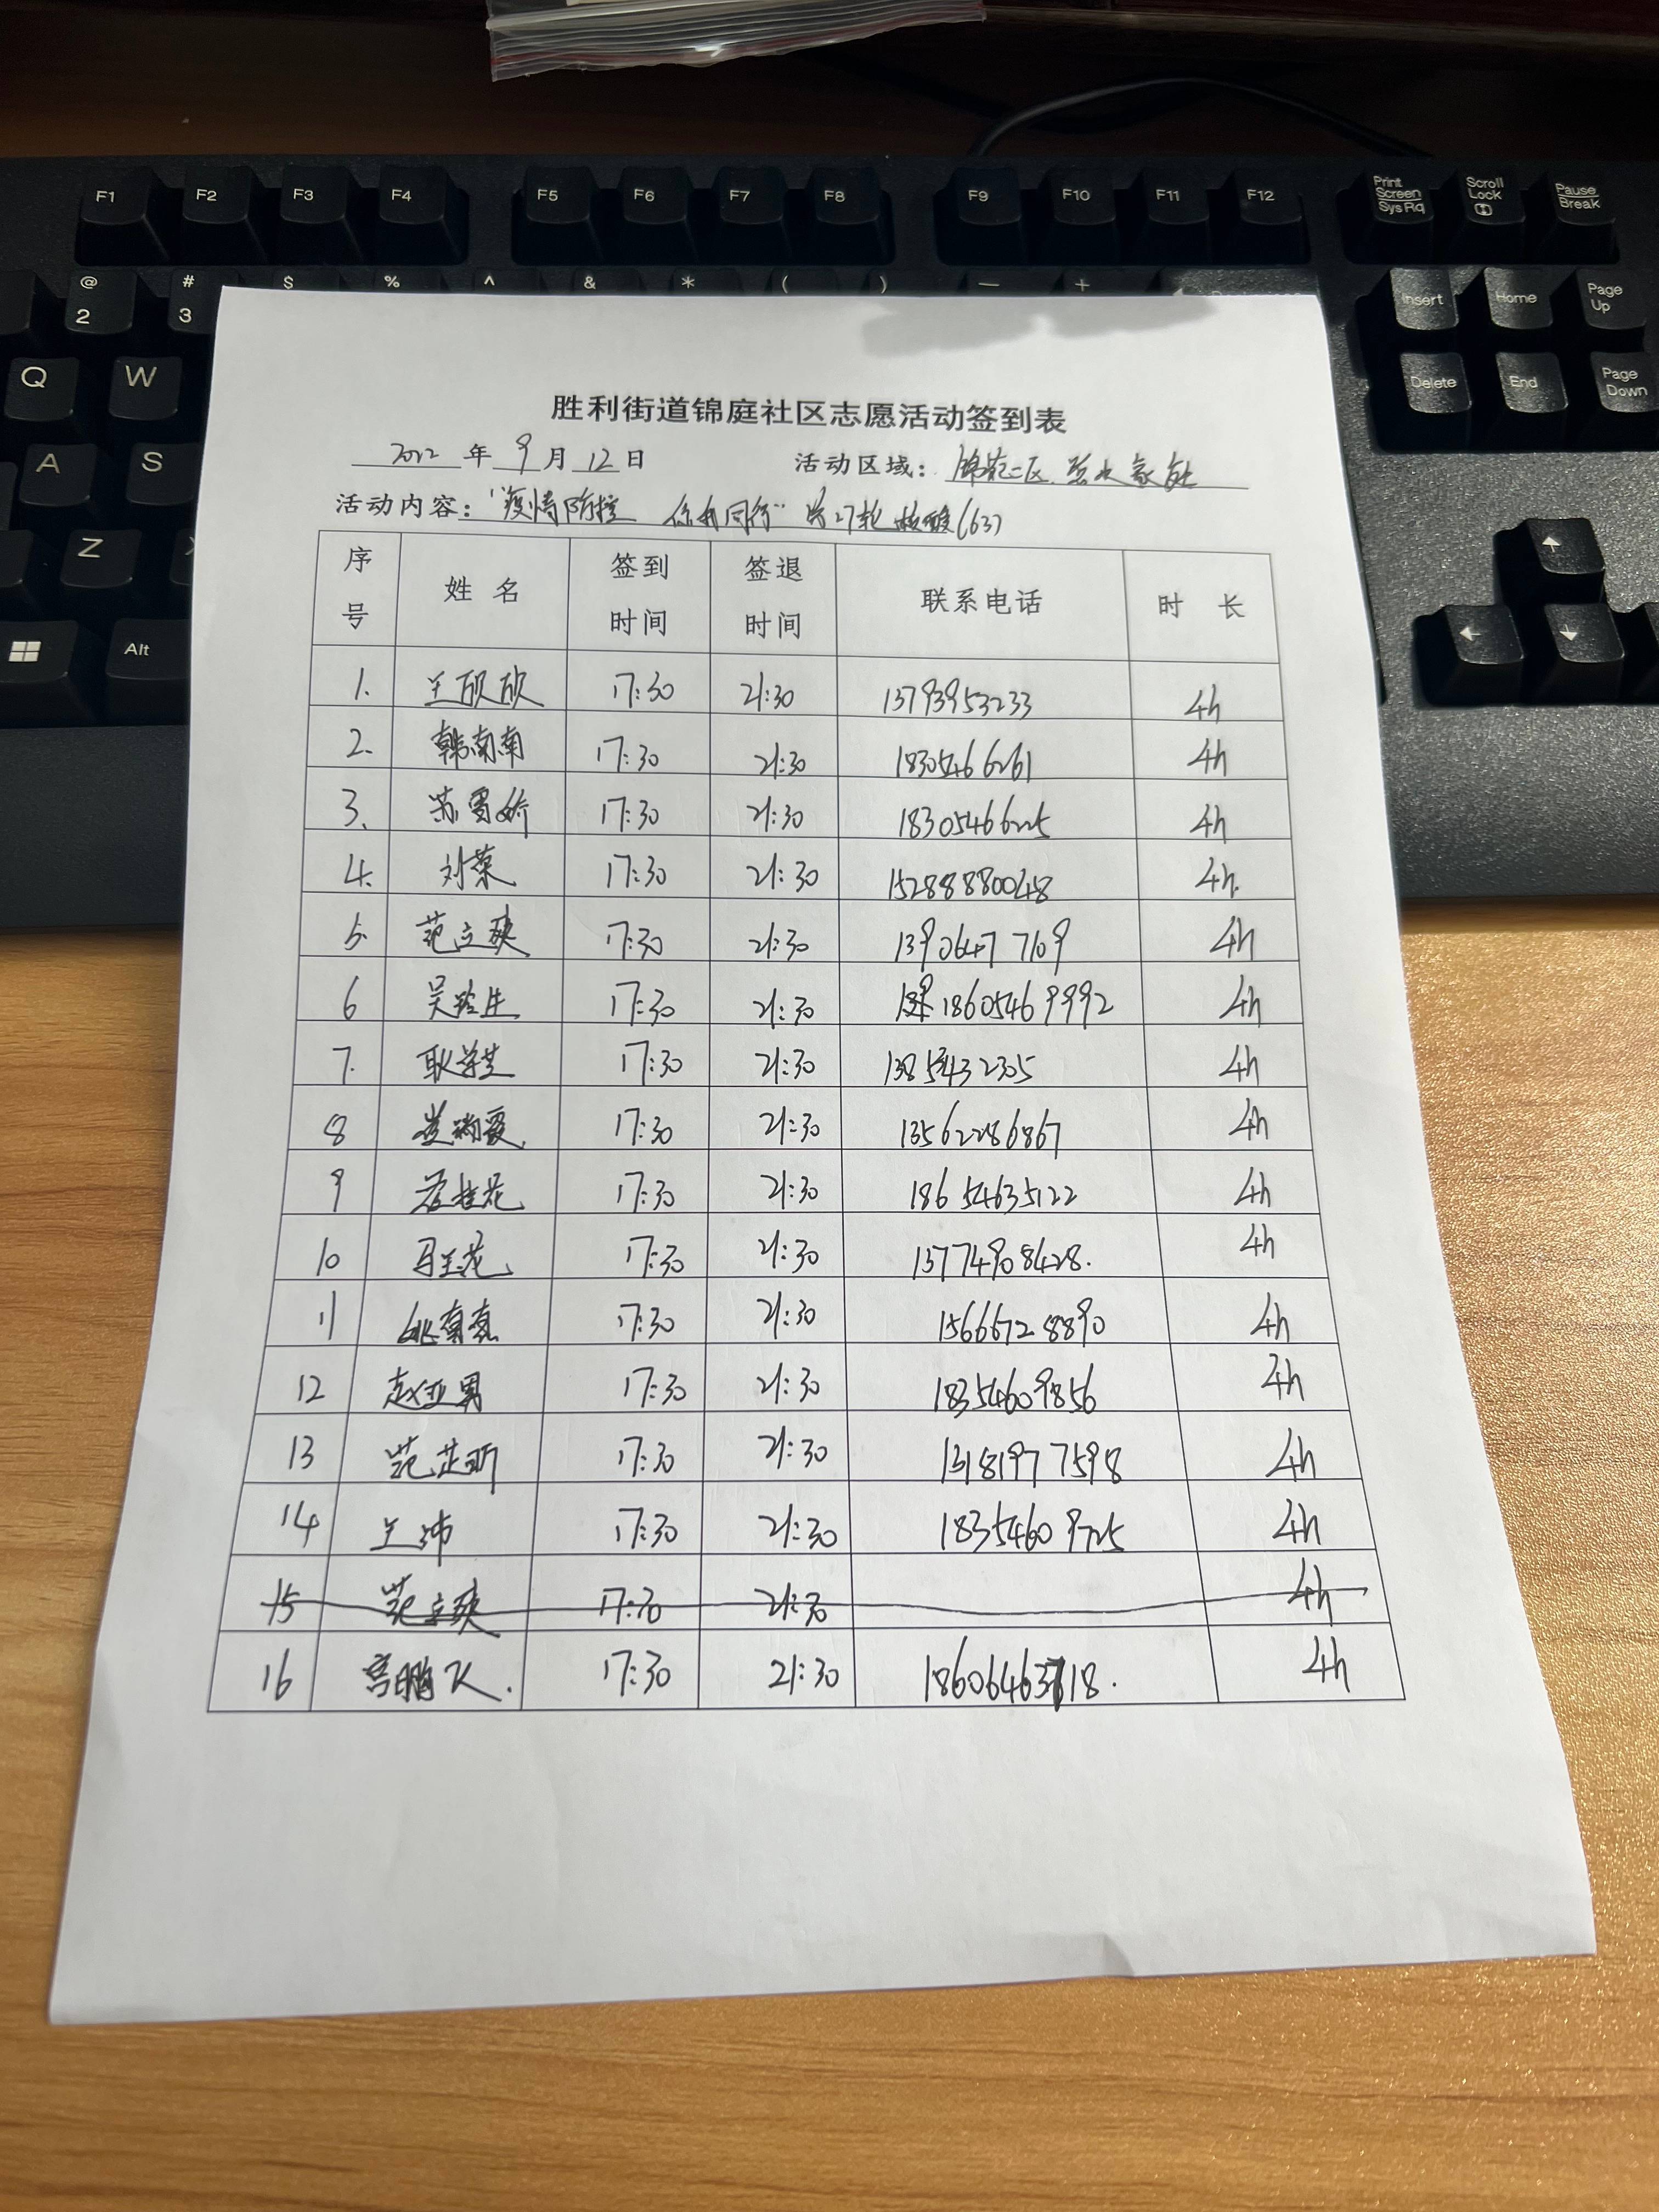 F1 F2 F3 F4 F5 F6 F7 F8 F9 F10 F11 F12 Print Screen SysRq Scroll Lock Pause Break
@ 2 # 3 $ % ^ & * ( ) — + Insert Home Page Up
Q W Delete End Page Down
A S
Z
Alt
胜利街道锦庭社区志愿活动签到表
2022 年 9 月 12 日 活动区域: 锦苑二区
活动内容: "疫情防控 你我同行" 第27轮核酸(63)
序号 姓名 签到时间 签退时间 联系电话 时长
1. 王欣欣 17:30 21:30 13793953233 4h
2. 韩南南 17:30 21:30 18305466261 4h
3. 苏雪娇 17:30 21:30 18305466225 4h
4. 刘荣 17:30 21:30 15288880048 4h.
5. 范立爽 17:30 21:30 13906477109 4h
6 17:30 21:30 18605469992 4h
7. 17:30 21:30 13854432305 4h
8 17:30 21:30 13562286867 4h
9 17:30 21:30 18654635122 4h
10 马兰花 17:30 21:30 13774908428. 4h
11 17:30 21:30 15666728890 4h
12 赵亚男 17:30 21:30 18354609856 4h
13 范芷昕 17:30 21:30 13181977598 4h
14 王沛 17:30 21:30 18354609725 4h
15 范立爽 17:30 21:30 4h
16 宫鹏飞. 17:30 21:30 18606463718. 4h